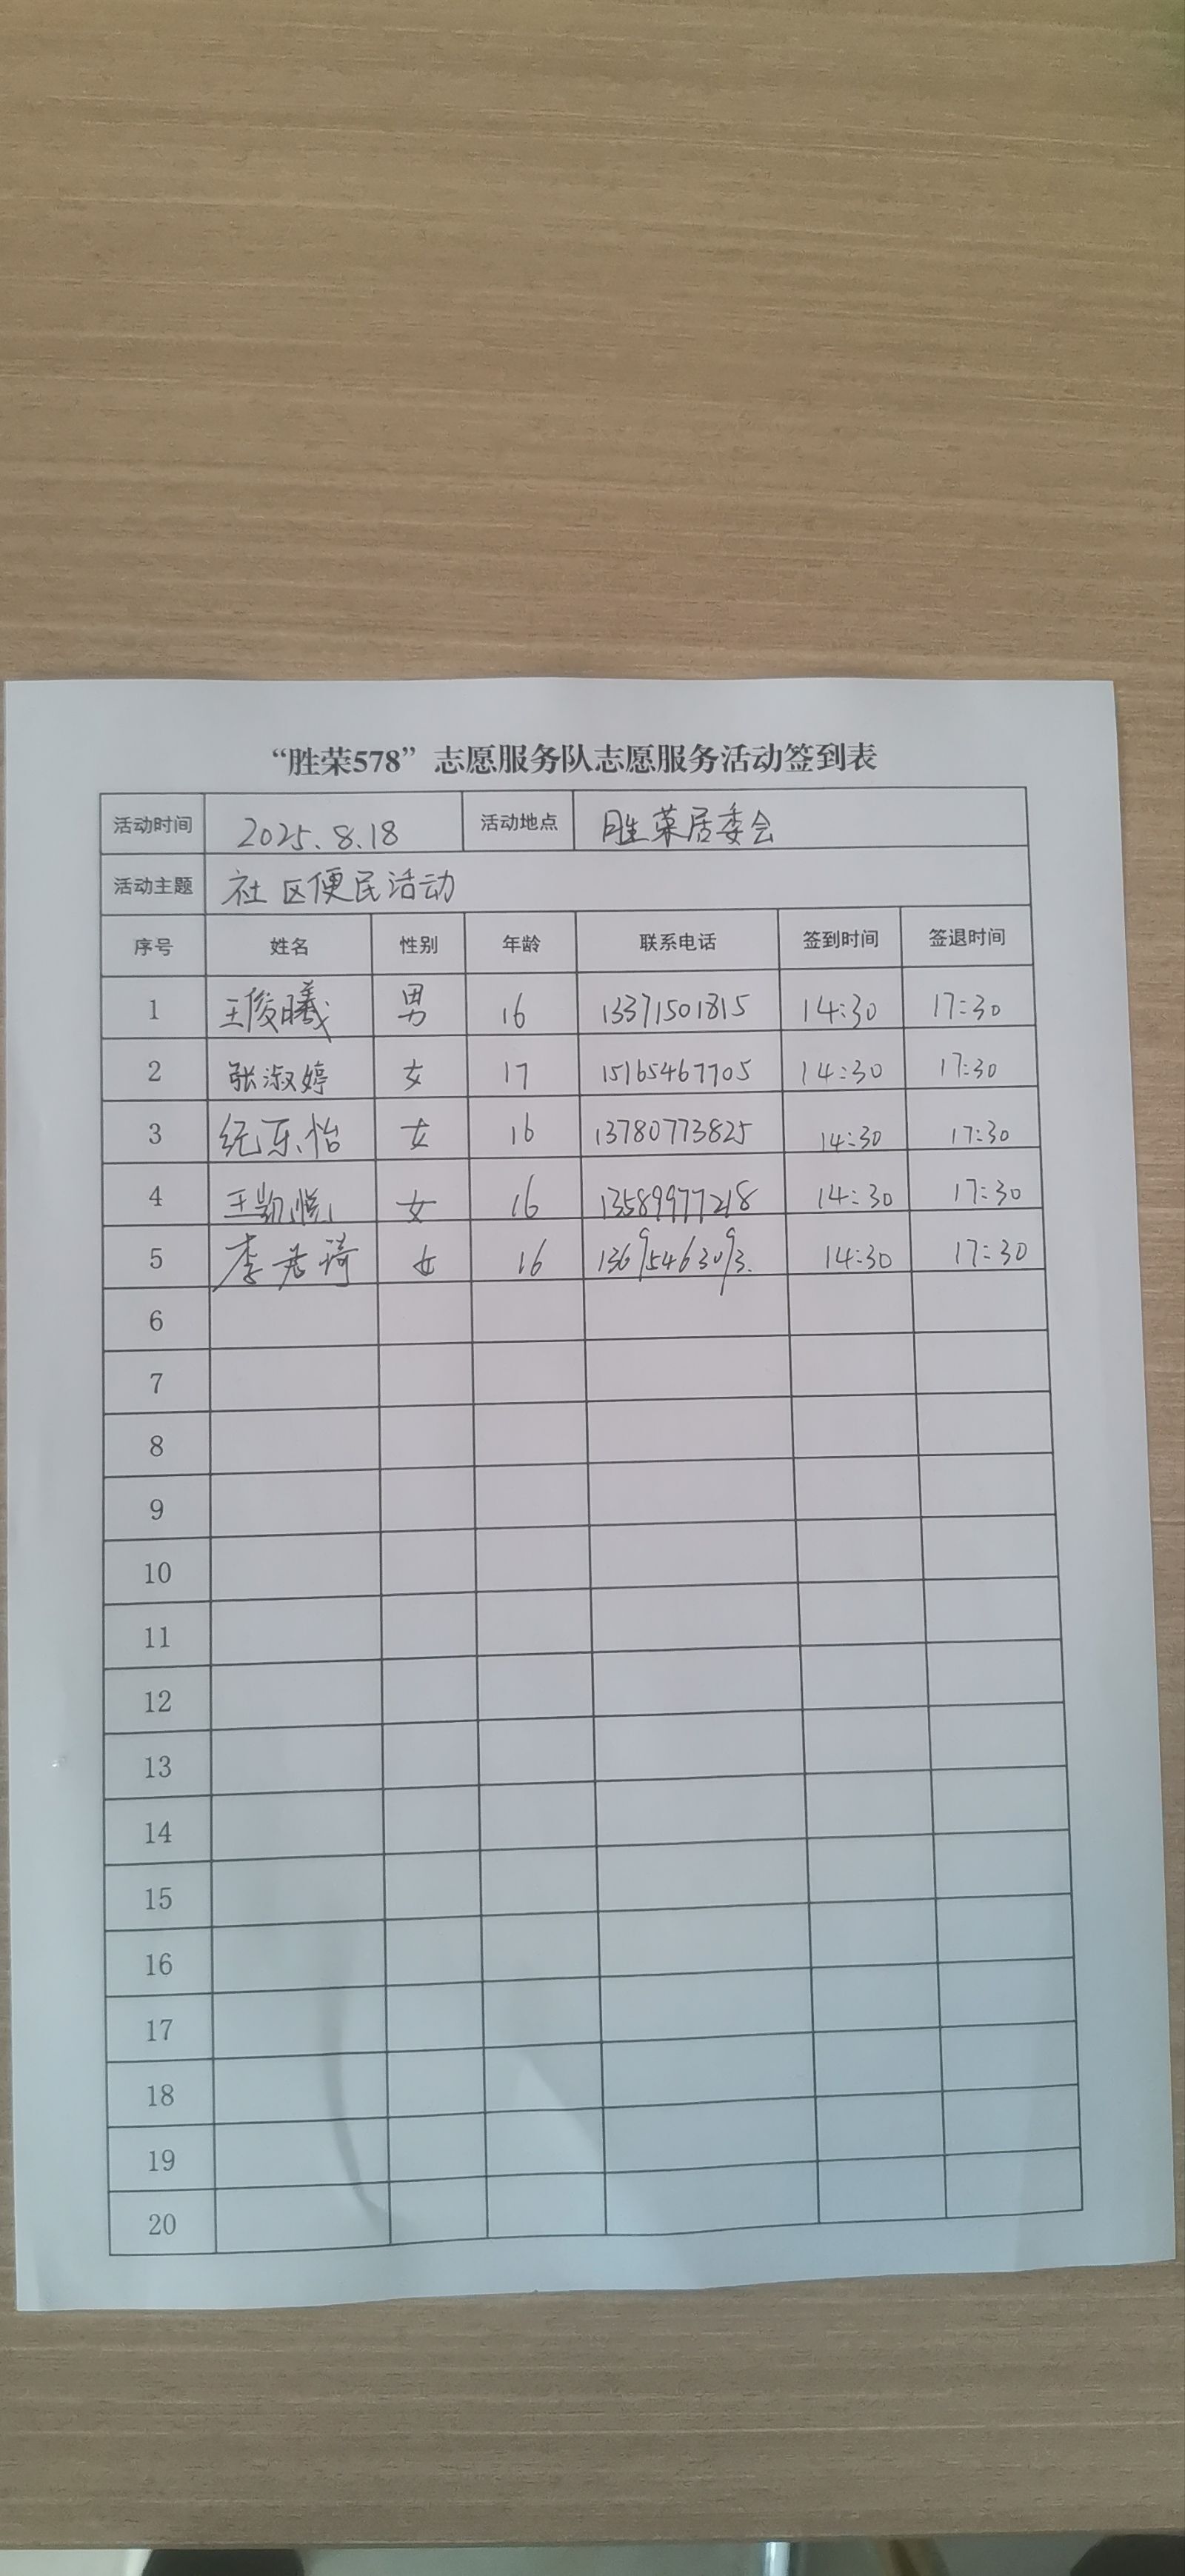 “胜荣578”志愿服务队志愿服务活动签到表
活动时间 2025.8.18 活动地点 胜荣居委会
活动主题 社区便民活动
序号 姓名 性别 年龄 联系电话 签到时间 签退时间
1 王俊曦 男 16 13371501815 14:30 17:30
2 张淑婷 女 17 15165467705 14:30 17:30
3 纪乐怡 女 16 13780773825 14:30 17:30
4 王凯悦 女 16 13589977218 14:30 17:30
5 李 琦 女 16 13695463093. 14:30 17:30
6
7
8
9
10
11
12
13
14
15
16
17
18
19
20